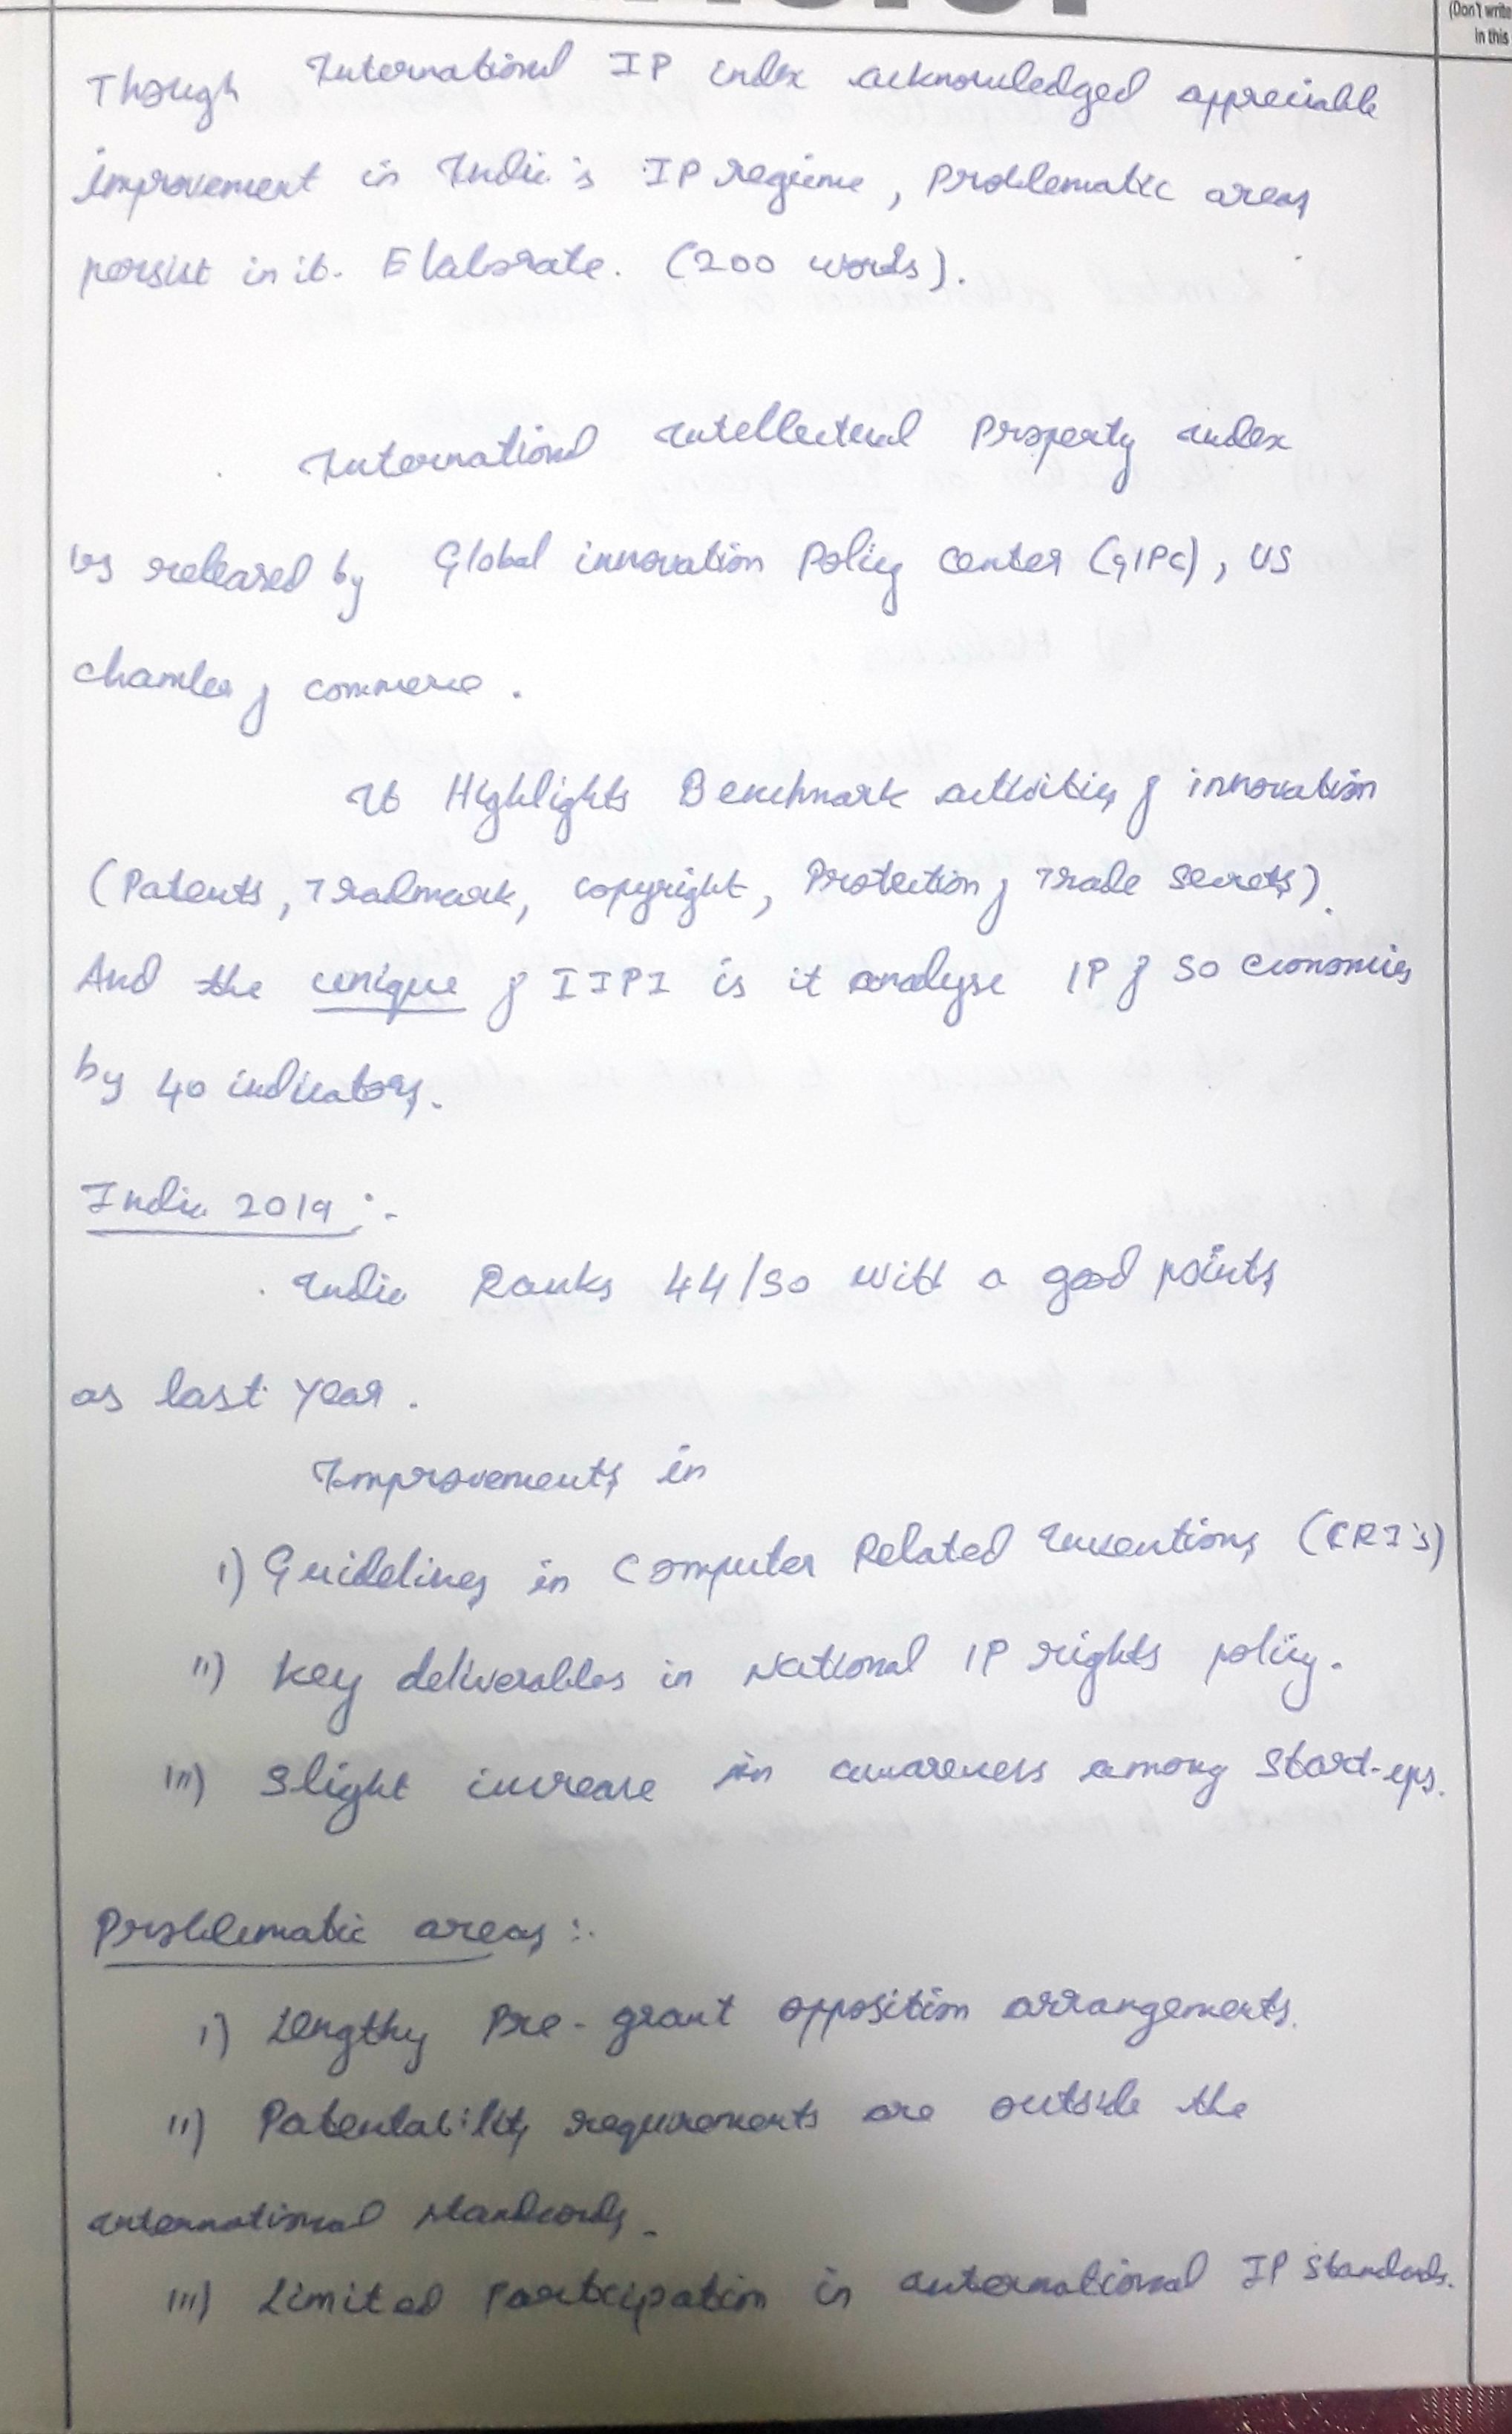 (Don't write
in this
Though International IP index acknowledged appreciable
improvement in India's IP regime, Problematic areas
persist in it. Elaborate. (200 words).
International Intellectual Property index
is released by Global innovation Policy Center (GIPC), US
chamber of commerce.
It Highlights Benchmark activities of innovation
(Patents, Tradmark, copyright, Protection of Trade secrets).
And the unique of IIPI is it analyse IP of 50 economies
by 40 indicators.
India 2019 :-
India Ranks 44/50 with a good points
as last year.
Improvements in
i) Guidelines in Computer Related Inventions (CRI's)
ii) Key deliverables in National IP rights policy.
iii) Slight increase in awareness among Start-ups.
Problematic areas :-
i) Lengthy Pre-grant opposition arrangements.
ii) Patentability requirements are outside the
international standards.
iii) Limited Participation in international IP Standards.